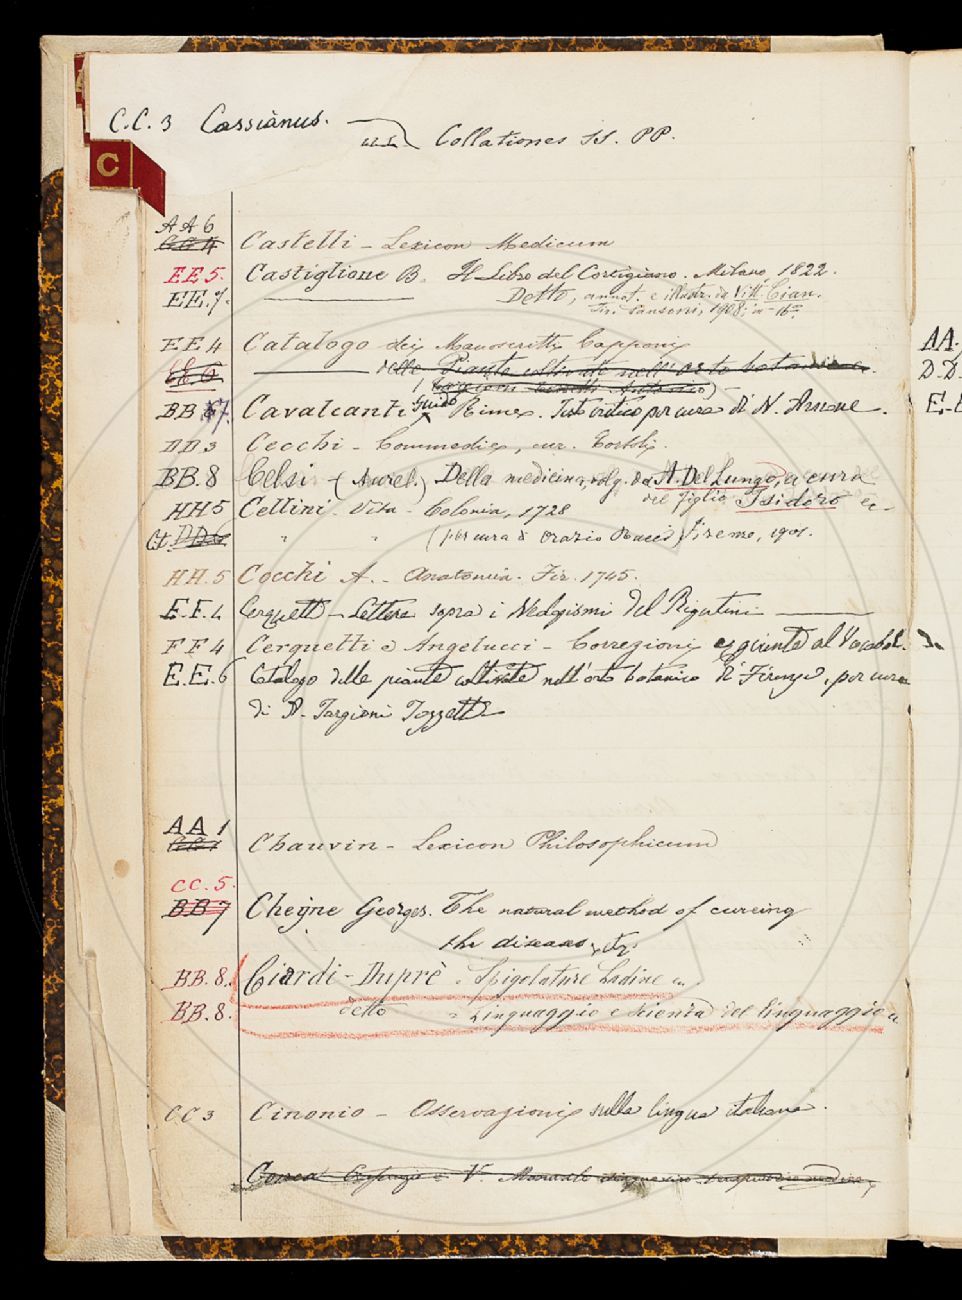 C.C. 3 Cassianus.
Collationes SS. PP.
C
AA6
CC4 Castelli - Lexicon Medicum
EE5. Castiglione B. Il Libro del Cortigiano. Milano 1822.
EE.7. Detto, annot. e illustr. da Vitt. Cian.
Fir. Sansoni, 1908, in-16°.
EE4 Catalogo dei Manoscritti Capponi
EE6 delle Piante coltivate nell'orto botanico
BB 7. Cavalcanti Guido Rime. Testo critico per cura di N. Arnone.
BB3 Cecchi - Commedie, cur.
BB.8 Celsi - (Aurel.) Della medicina, volg. da A. Del Lungo, a cura
del figlio Isidoro
HH5 Cellini. Vita - Colonia, 1728
DD6 " " (per cura di Orazio Bacci) Firenze, 1901.
HH.5 Cocchi A. - Anatomia. Fir. 1745.
Cerquetti - Lettera sopra i Neologismi del Rigutini
FF4 Cerquetti e Angelucci - Correzioni e giunte al Vocabol.
E.E.6 Catalogo delle piante coltivate nell'orto botanico di Firenze, per cura
di A. Targioni Tozzetti
AA1
CC1 Chauvin - Lexicon Philosophicum
CC.5.
BB7 Cheyne Georges. The natural method of cureing
the diseases, etc.
BB.8. Ciardi-Duprè - Spigolature Ladine
BB.8. detto - Linguaggio e scienza del linguaggio
CC3 Cinonio - Osservazioni sulla lingua italiana.
V. Manuale
AA.
D.D.
E.E